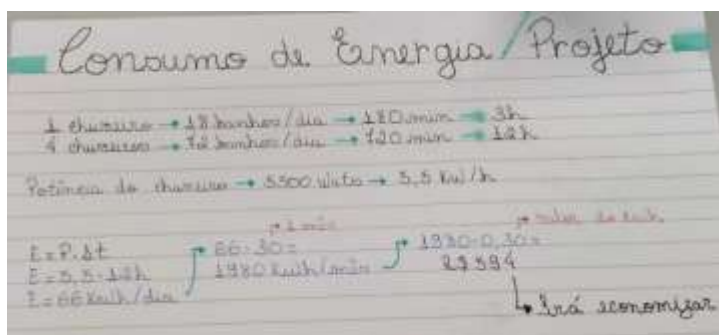 Consumo de Energia / Projeto
1 chuveiro → 18 banhos/dia → 180 min → 3h
4 chuveiros → 72 banhos/dia → 720 min → 12h
Potência do chuveiro → 5500 watts → 5,5 kw/h
→ 1 mês
→ valor do kwh
E = P.Δt
66.30 =
1980.0,30 =
E = 5,5.12h
1980 kwh/mês
E = 66 kwh/dia
→ Irá economizar